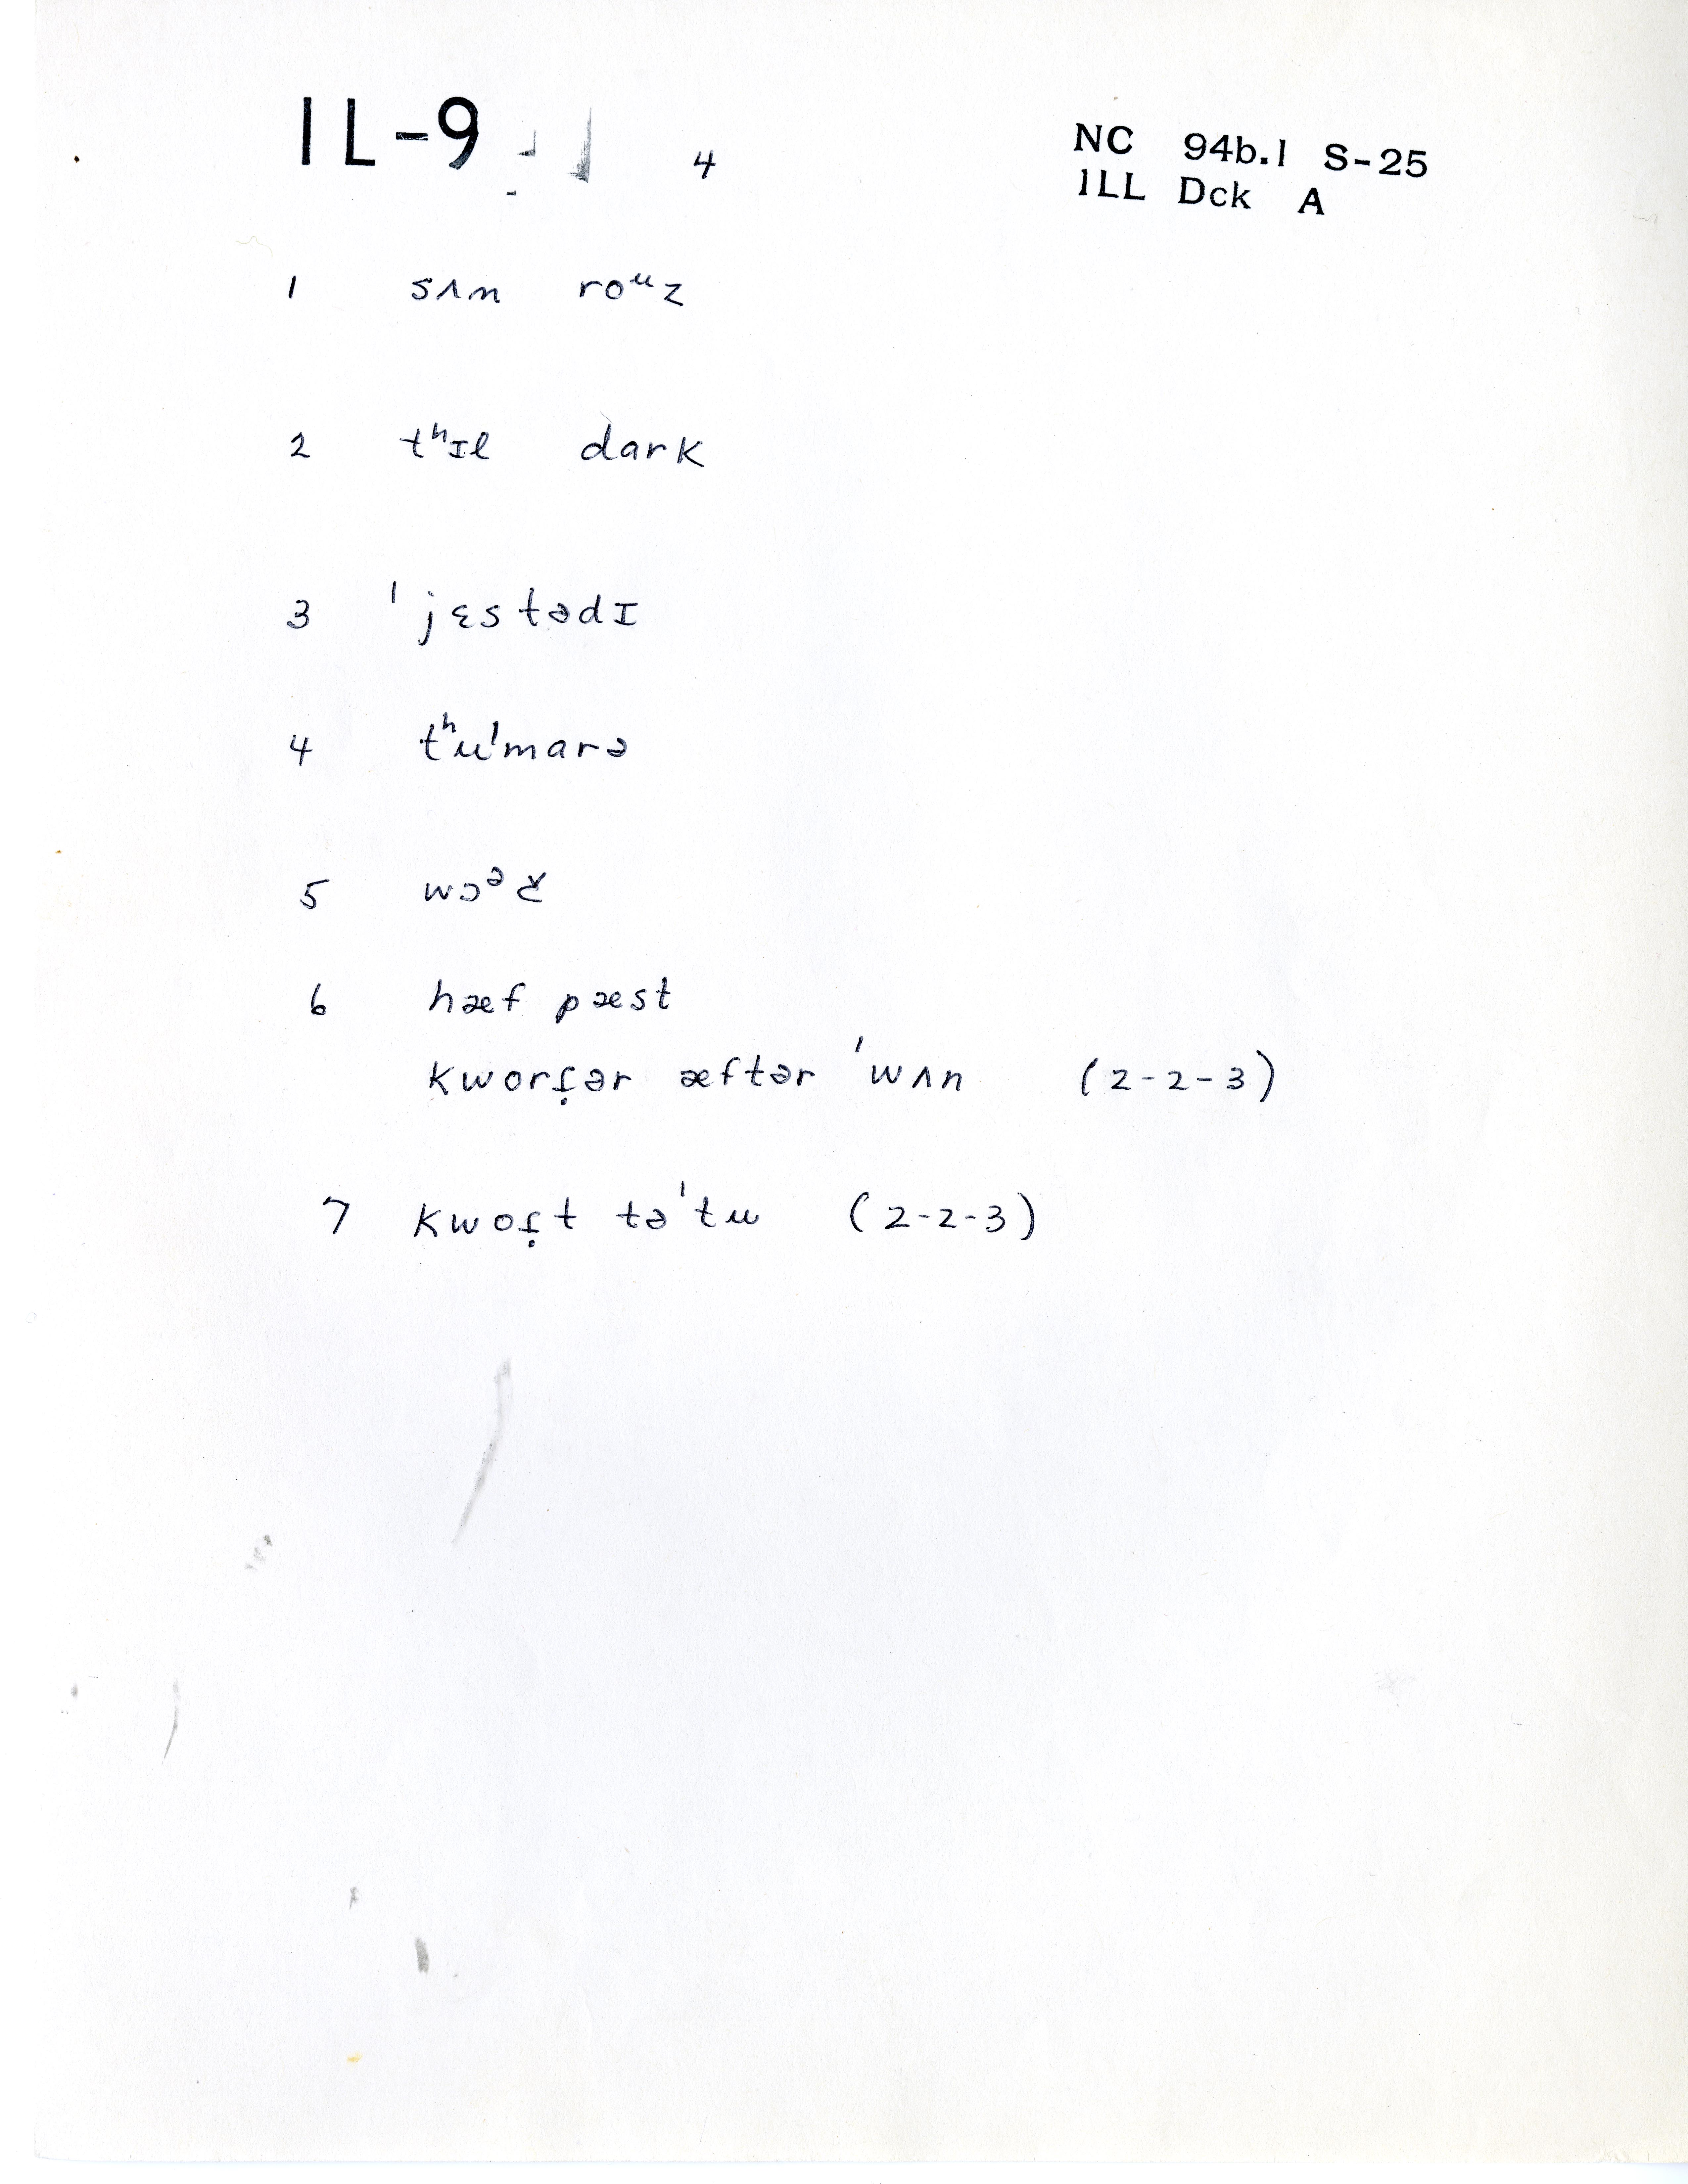 IL-9 4
NC 94b.1 S-25
ILL Dck A
1 sʌn roᵘz
2 tʰɪl dark
3 ˈjɛstədɪ
4 tʰuˈmarə
5
6 hæf pæst
kworṭ̬ər æftər ˈwʌn (2-2-3)
7 təˈtu (2-2-3)